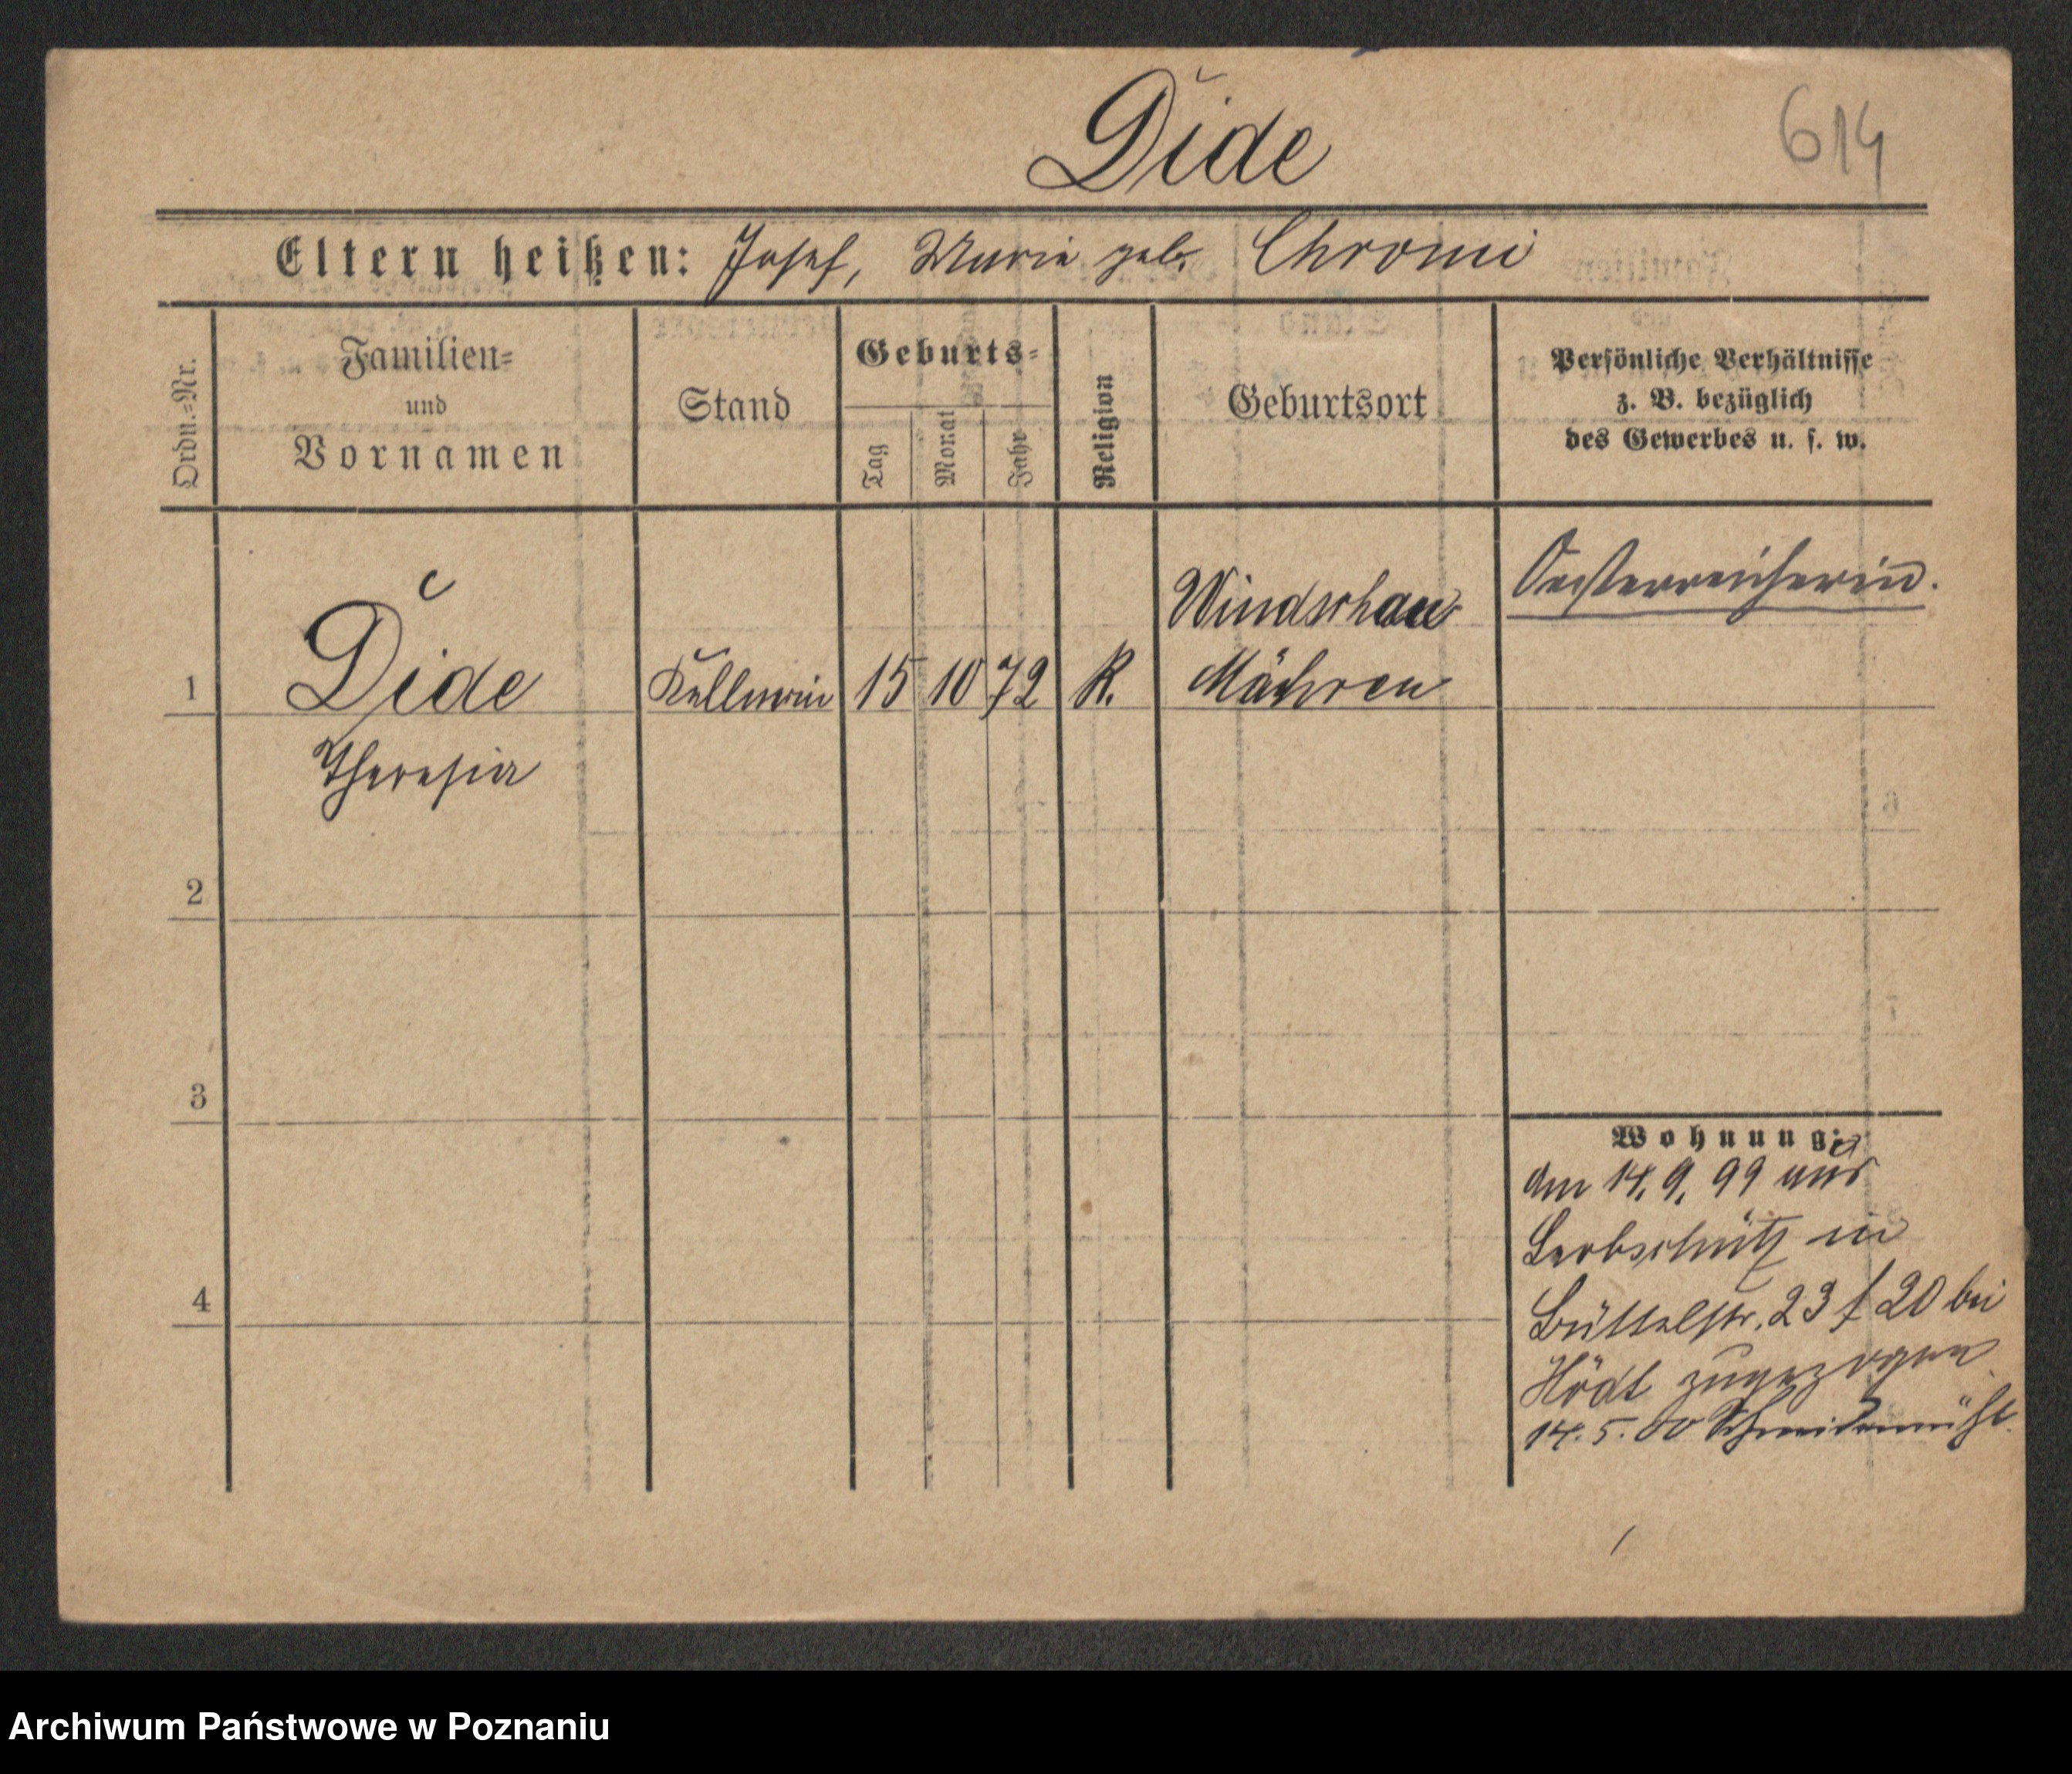 Dide
614
Eltern heißen: Josef, Marie geb. Chromi
Ordn.=Nr.
Familien=
und
Vornamen
Stand
Geburts=
Tag
Monat
Jahr
Religion
Geburtsort
Persönliche Verhältnisse
z. B. bezüglich
des Gewerbes u. s. w.
Oesterreicherin.
Windschau
1 Dide Kellnerin 15 10 72 K. Mähren
Theresia
2
3
4
Wohnung:
Am 14. 9. 99 aus
Leobschütz in
Büttelstr. 23 f 20 bei
Hödt zugezogen
14. 5. 00 Schneidemühl.
Archiwum Państwowe w Poznaniu